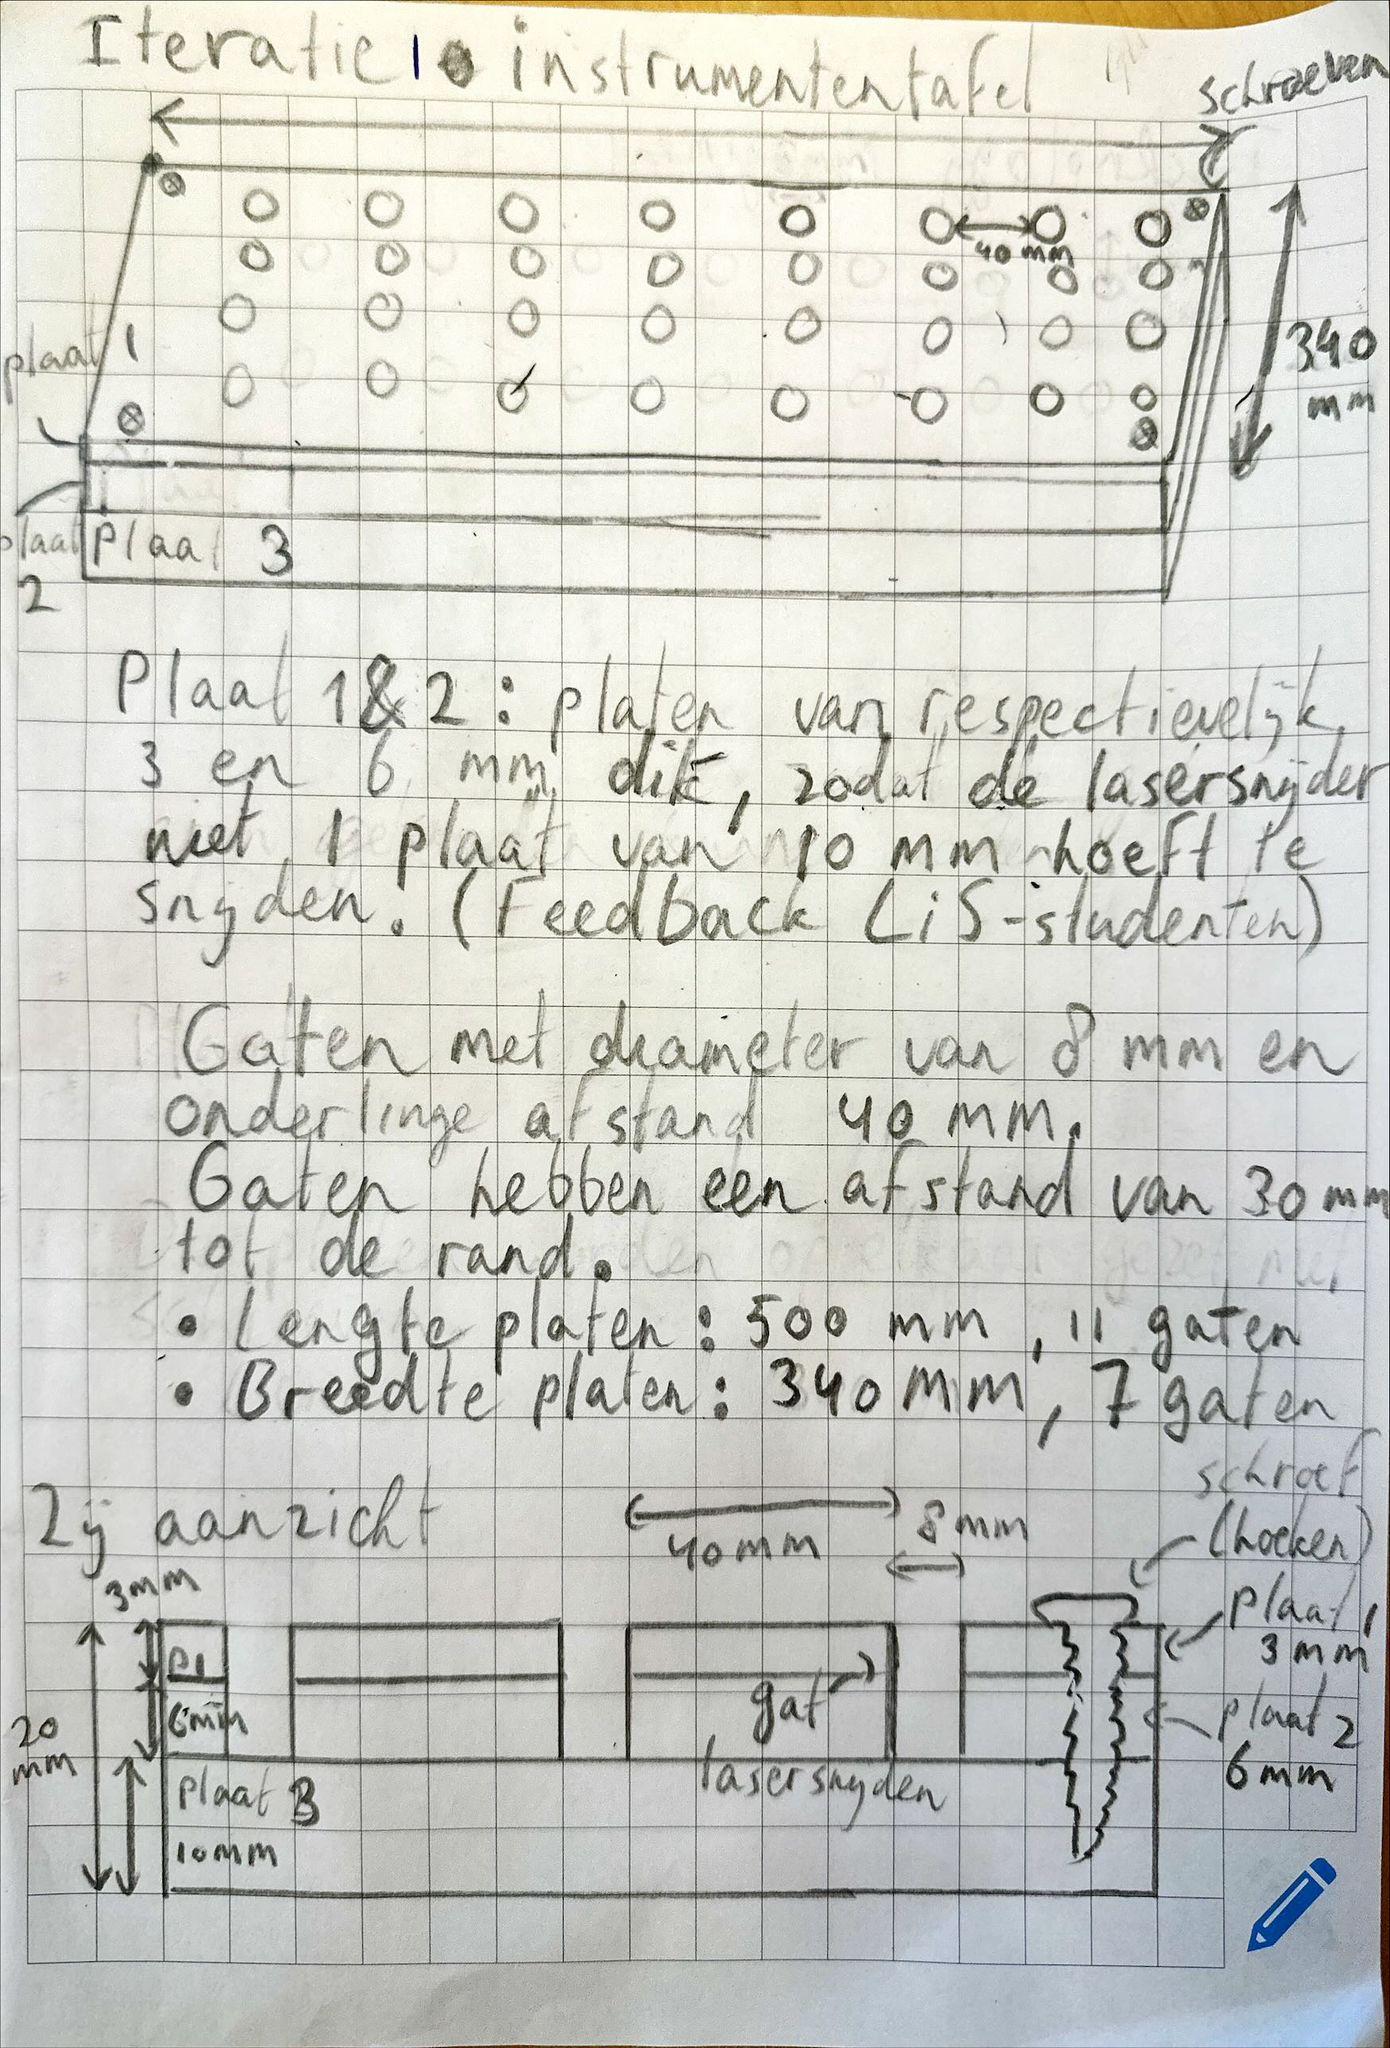 Iteratie 1 instrumententafel
schroeven
40 mm
340
mm
plaat 1
plaat
2
Plaat 3
Plaat 1 & 2 : platen van respectievelijk
3 en 6 mm dik, zodat de lasersnijder
niet 1 plaat van 10 mm hoeft te
snijden. (Feedback LiS-studenten)
Gaten met diameter van 8 mm en
onderlinge afstand 40 mm.
Gaten hebben een afstand van 30 mm
tot de rand.
• Lengte platen : 500 mm , 11 gaten
• Breedte platen : 340 mm , 7 gaten
Zij aanzicht
40 mm
8 mm
schroef
(hoeken)
3mm
plaat 1
3 mm
P1
6mm
gat
lasersnijden
plaat 2
6 mm
20
mm
plaat 3
10mm